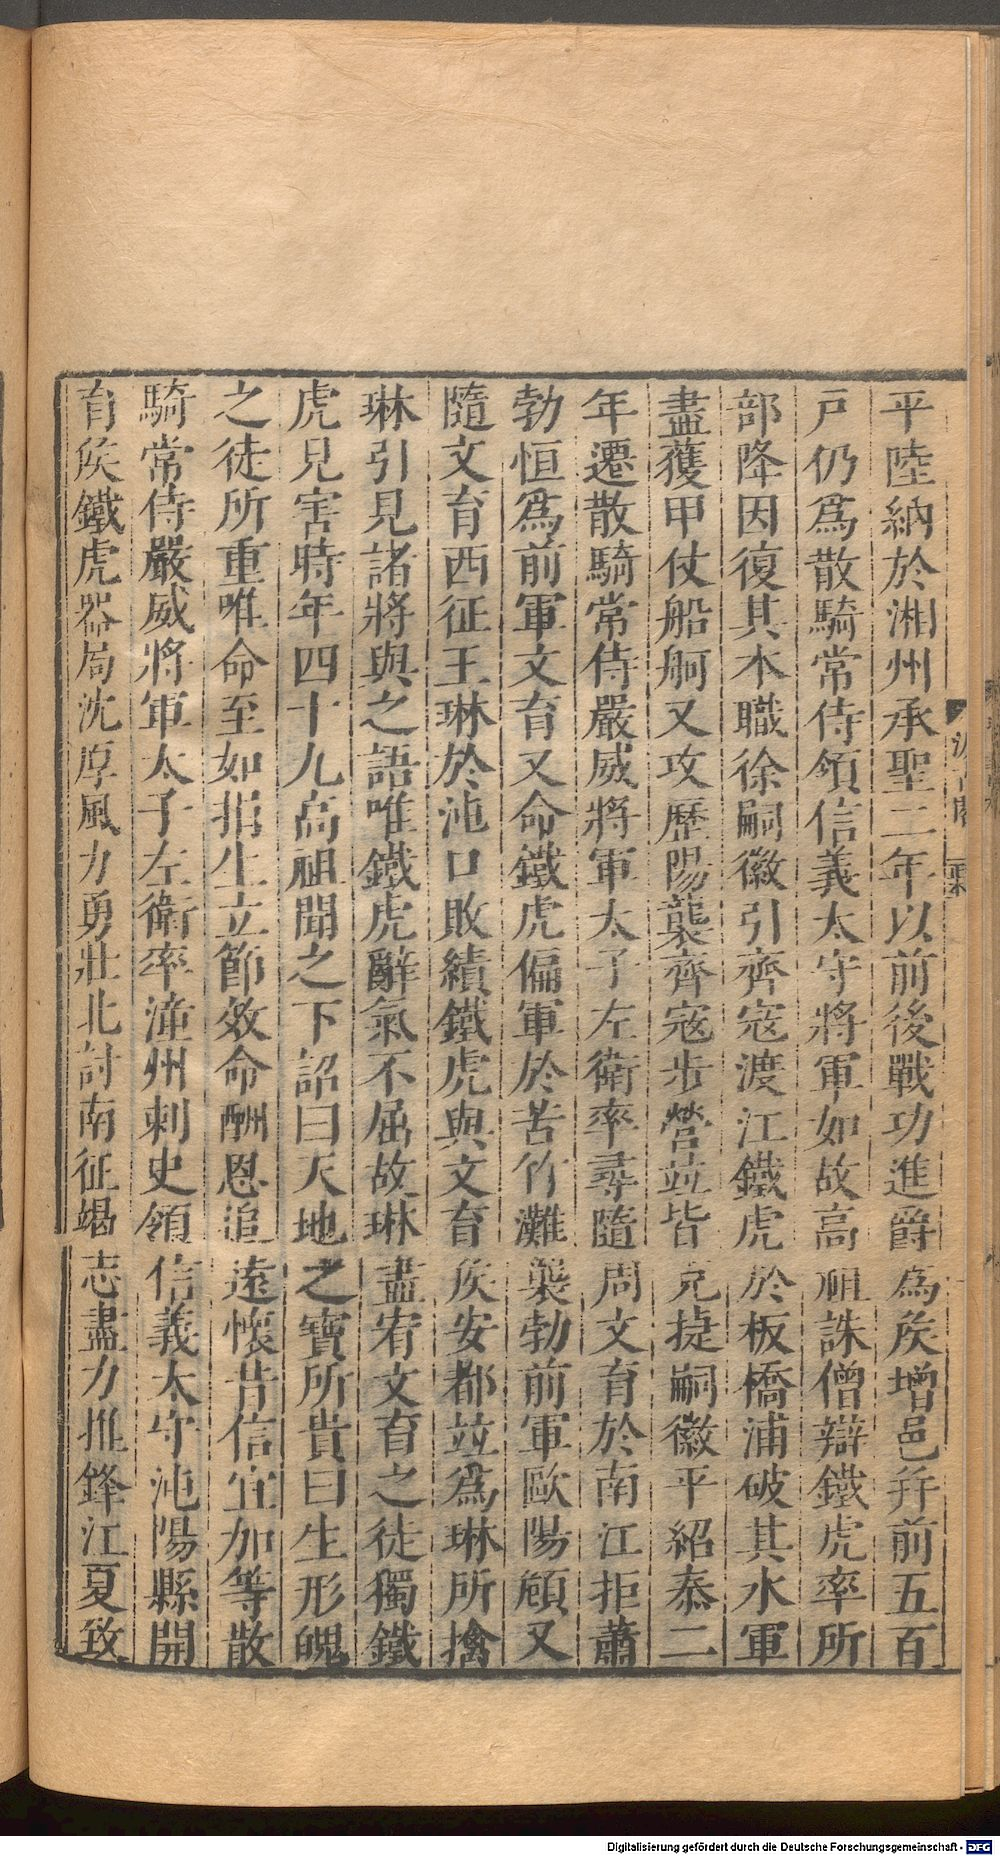 平陸納於湘州承聖二年以前後戰功進爵爲矦增邑幷前五百
戸仍爲散騎常侍領信義太守將軍如故高祖誅僧辯鐵虎率所
部降因復其本職徐嗣徽引齊寇渡江鐵虎於板橋浦破其水軍
盡獲甲仗船舸又攻歷陽襲齊寇步營竝皆克捷嗣徽平紹泰二
年遷散騎常侍嚴威將軍太子左衛率尋隨周文育於南江拒蕭
勃恒爲前軍文育又命鐵虎偏軍於苦竹灘襲勃前軍歐陽頠又
隨文育西征王琳於沌口敗績鐵虎與文育矦安都竝爲琳所擒
琳引見諸將與之語唯鐵虎辭氣不屈故琳盡宥文育之徒獨鐵
虎見害時年四十九高祖聞之下詔曰天地之寶所貴曰生形魄
之徒所重唯命至如捐生立節效命酬恩追遠懷昔信宜加等散
騎常侍嚴威將軍太子左衛率潼州刺史領信義太守沌陽縣開
育矦鐵虎器局沈厚風力勇壯北討南征竭志盡力推鋒江夏致
Digitalisierung gefördert durch die Deutsche Forschungsgemeinschaft - DFG